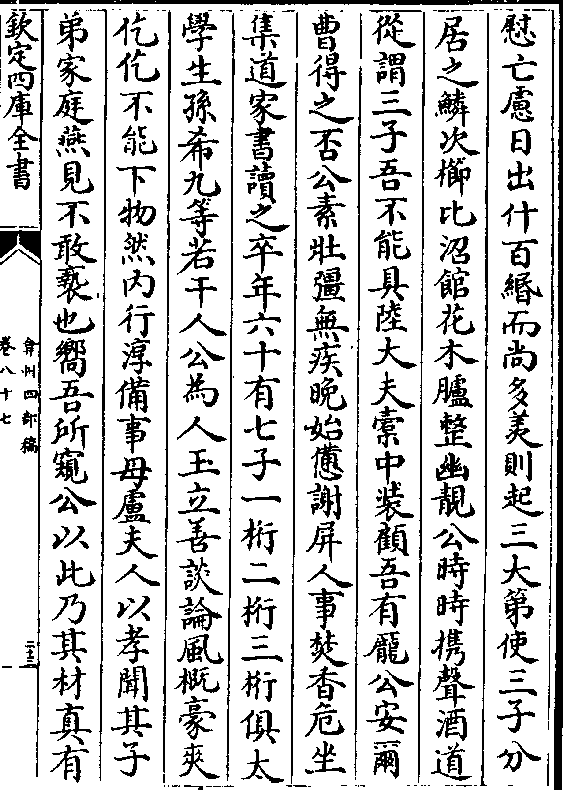 慰亡慮日出什百緡而尚多羡則起三大第使三子分
居之鱗次櫛比沼館花木臚整幽靚公時時携聲酒道
從謂三子吾不能具陸大夫槖中装顧吾有龎公安爾
曹得之否公素壯彊無疾晚始憊謝屏人事焚香危坐
集道家書讀之卒年六十有七子一桁二桁三桁俱太
學生孫希九等若干人公為人玉立善談論風概豪爽
仡仡不能下物然内行淳備事母盧夫人以孝聞其子
弟家庭燕見不敢褻也嚮吾所窺公以此乃其材真有
欽定四庫全書
弇州四部稿
卷八十七
二十三